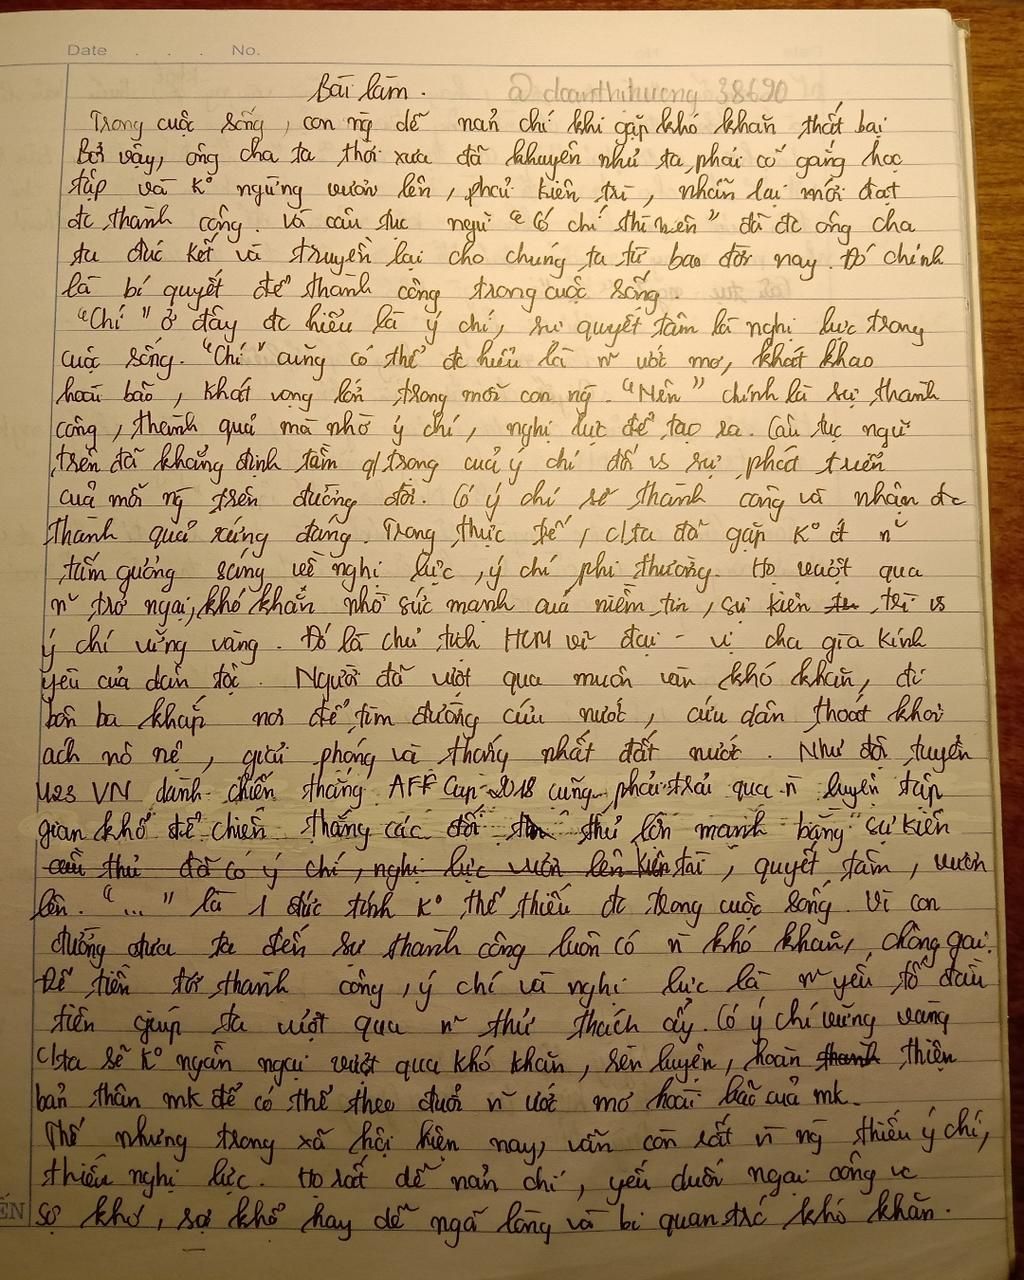 Date . . . No.
Bài làm. @doanthihuong 38690
Trong cuộc sống, con ng dễ nản chí khi gặp khó khăn thất bại
Bởi vậy, ông cha ta thời xưa đã khuyên nhủ ta phải cố gắng học
tập và K° ngừng vươn lên, phải kiên trì, nhẫn lại mới đạt
đc thành công. Và câu tục ngữ "Có chí thì nên" đã đc ông cha
ta đúc kết và truyền lại cho chúng ta từ bao đời nay. Đó chính
là bí quyết để thành công trong cuộc sống.
"Chí" ở đây đc hiểu là ý chí, sự quyết tâm là nghị lực trong
cuộc sống. "Chí" cũng có thể đc hiểu là n~ ước mơ, khát khao
hoài bão, khát vọng lớn trong mỗi con ng. "Nên" chính là sự thành
công, thành quả mà nhờ ý chí, nghị lực để tạo ra. Câu tục ngữ
trên đã khẳng định tầm q/trọng của ý chí đối vs sự phát triển
của mỗi ng trên đường đời. Có ý chí sẽ thành công và nhận đc
thành quả xứng đáng. Trong thực tế, c/ta đã gặp K° ít n~
tấm gương sáng về nghị lực, ý chí phi thường. Họ vượt qua
n~ trở ngại, khó khăn nhờ sức mạnh của niềm tin, sự kiên trì vs
ý chí vững vàng. Đó là chủ tịch HCM vĩ đại - vị cha già kính
yêu của dân tộc. Người đã vượt qua muôn vàn khó khăn, đi
bôn ba khắp nơi để tìm đường cứu nước, cứu dân thoát khỏi
ách nô nệ, giải phóng và thống nhất đất nước. Như đội tuyển
U23 VN dành chiến thắng AFF Cup 2018 cũng phải trải qua n~ luyện tập
gian khổ để chiến thắng các đối thủ lớn mạnh bằng sự kiên
thủ đã có ý chí, nghị lực vươn lên kiên trì, quyết tâm, vươn
lên. "..." là 1 đức tính K° thể thiếu đc trong cuộc sống. Vì con
đường đưa ta đến sự thành công luôn có n~ khó khăn, chông gai.
Để tiến tới thành công, ý chí và nghị lực là n~ yếu tố đầu
tiên giúp ta vượt qua n~ thử thách ấy. Có ý chí vững vàng
c/ta sẽ K° ngần ngại vượt qua khó khăn, rèn luyện, hoàn thành thiện
bản thân mk để có thể theo đuổi n~ ước mơ hoài bão của mk.
Thế nhưng trong xã hội hiện nay, vẫn còn rất n~ ng thiếu ý chí,
thiếu nghị lực. Họ rất dễ nản chí, yếu đuối ngại công vc
sợ khó, sợ khổ hay dễ ngã lòng và bi quan trc khó khăn.
ẾN